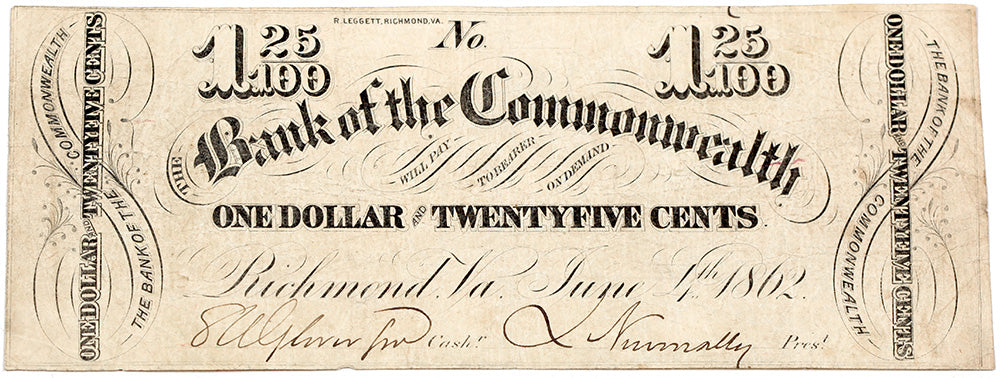 R. LEGGETT, RICHMOND, VA.
No.
1 25/100
1 25/100
THE Bank of the Commonwealth
WILL PAY TO BEARER ON DEMAND
ONE DOLLAR AND TWENTYFIVE CENTS.
Richmond, Va. June 4th 1862.
Cashr
Nunnally Prest
THE BANK OF THE COMMONWEALTH
ONE DOLLAR AND TWENTYFIVE CENTS
THE BANK OF THE COMMONWEALTH
ONE DOLLAR AND TWENTYFIVE CENTS